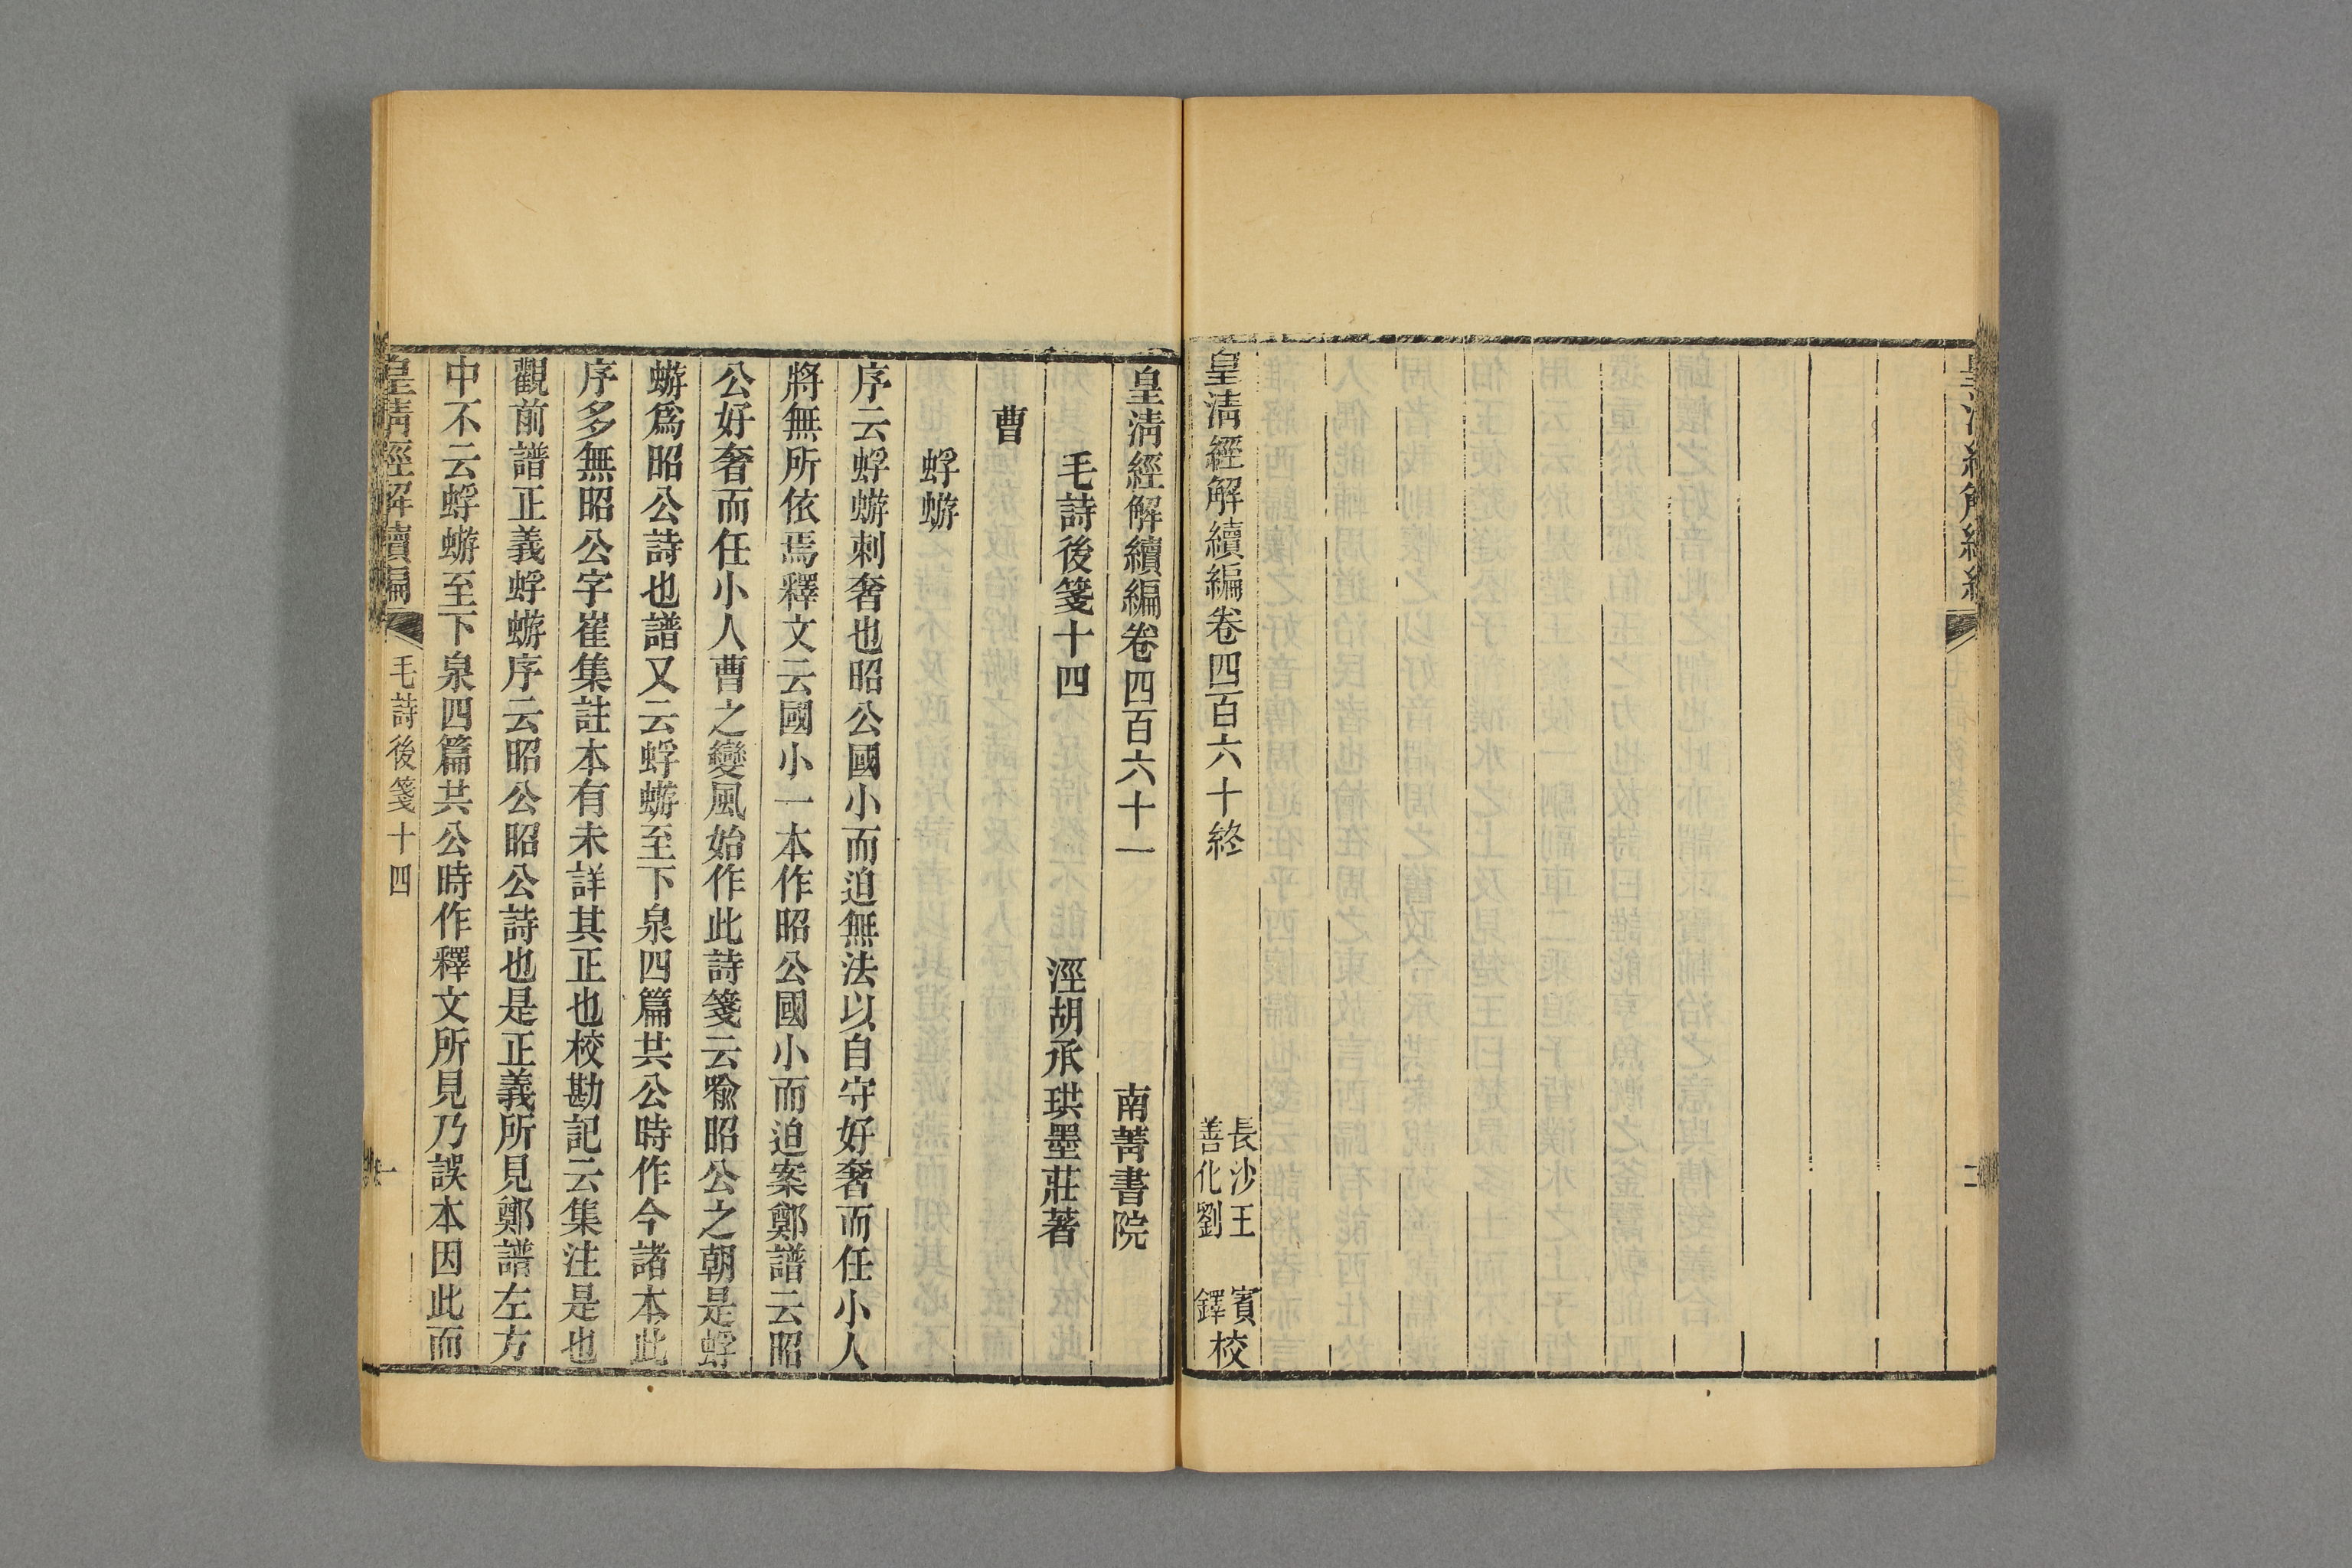 皇清經解續編卷四百六十終
長沙王　賓
善化劉　鐸
校
皇清經解續編卷四百六十一
南菁書院
毛詩後箋十四
涇胡承珙墨莊著
曹
蜉蝣
序云蜉蝣刺奢也昭公國小而迫無法以自守好奢而任小人
將無所依焉釋文云國小一本作昭公國小而迫案鄭譜云昭
公好奢而任小人曹之變風始作此詩箋云喩昭公之朝是蜉
蝣爲昭公詩也譜又云蜉蝣至下泉四篇共公時作今諸本此
序多無昭公字崔集註本有未詳其正也校勘記云集注是也
觀前譜正義蜉蝣序云昭公昭公詩也是正義所見鄭譜左方
中不云蜉蝣至下泉四篇共公時作釋文所見乃誤本因此而
皇清經解續編
毛詩後箋十四
一